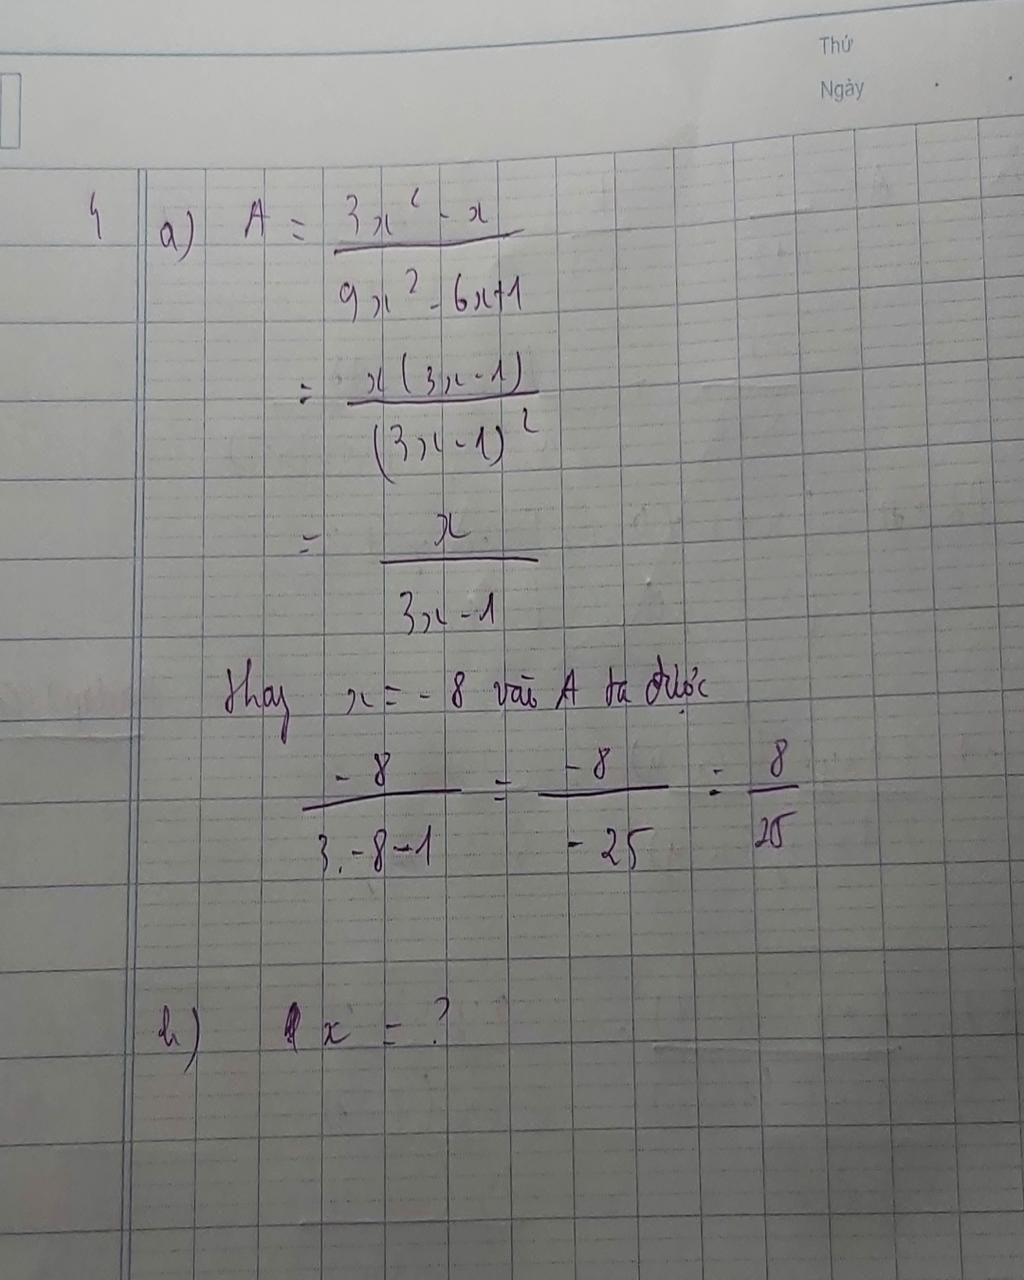 Thứ
Ngày
4 a) A = (3x² - x) / (9x² - 6x+1)
= x(3x-1) / (3x-1)²
= x / (3x-1)
Thay x = -8 vào A ta được
-8 / (3.-8-1) = -8 / -25 = 8 / 25
b) x = ?